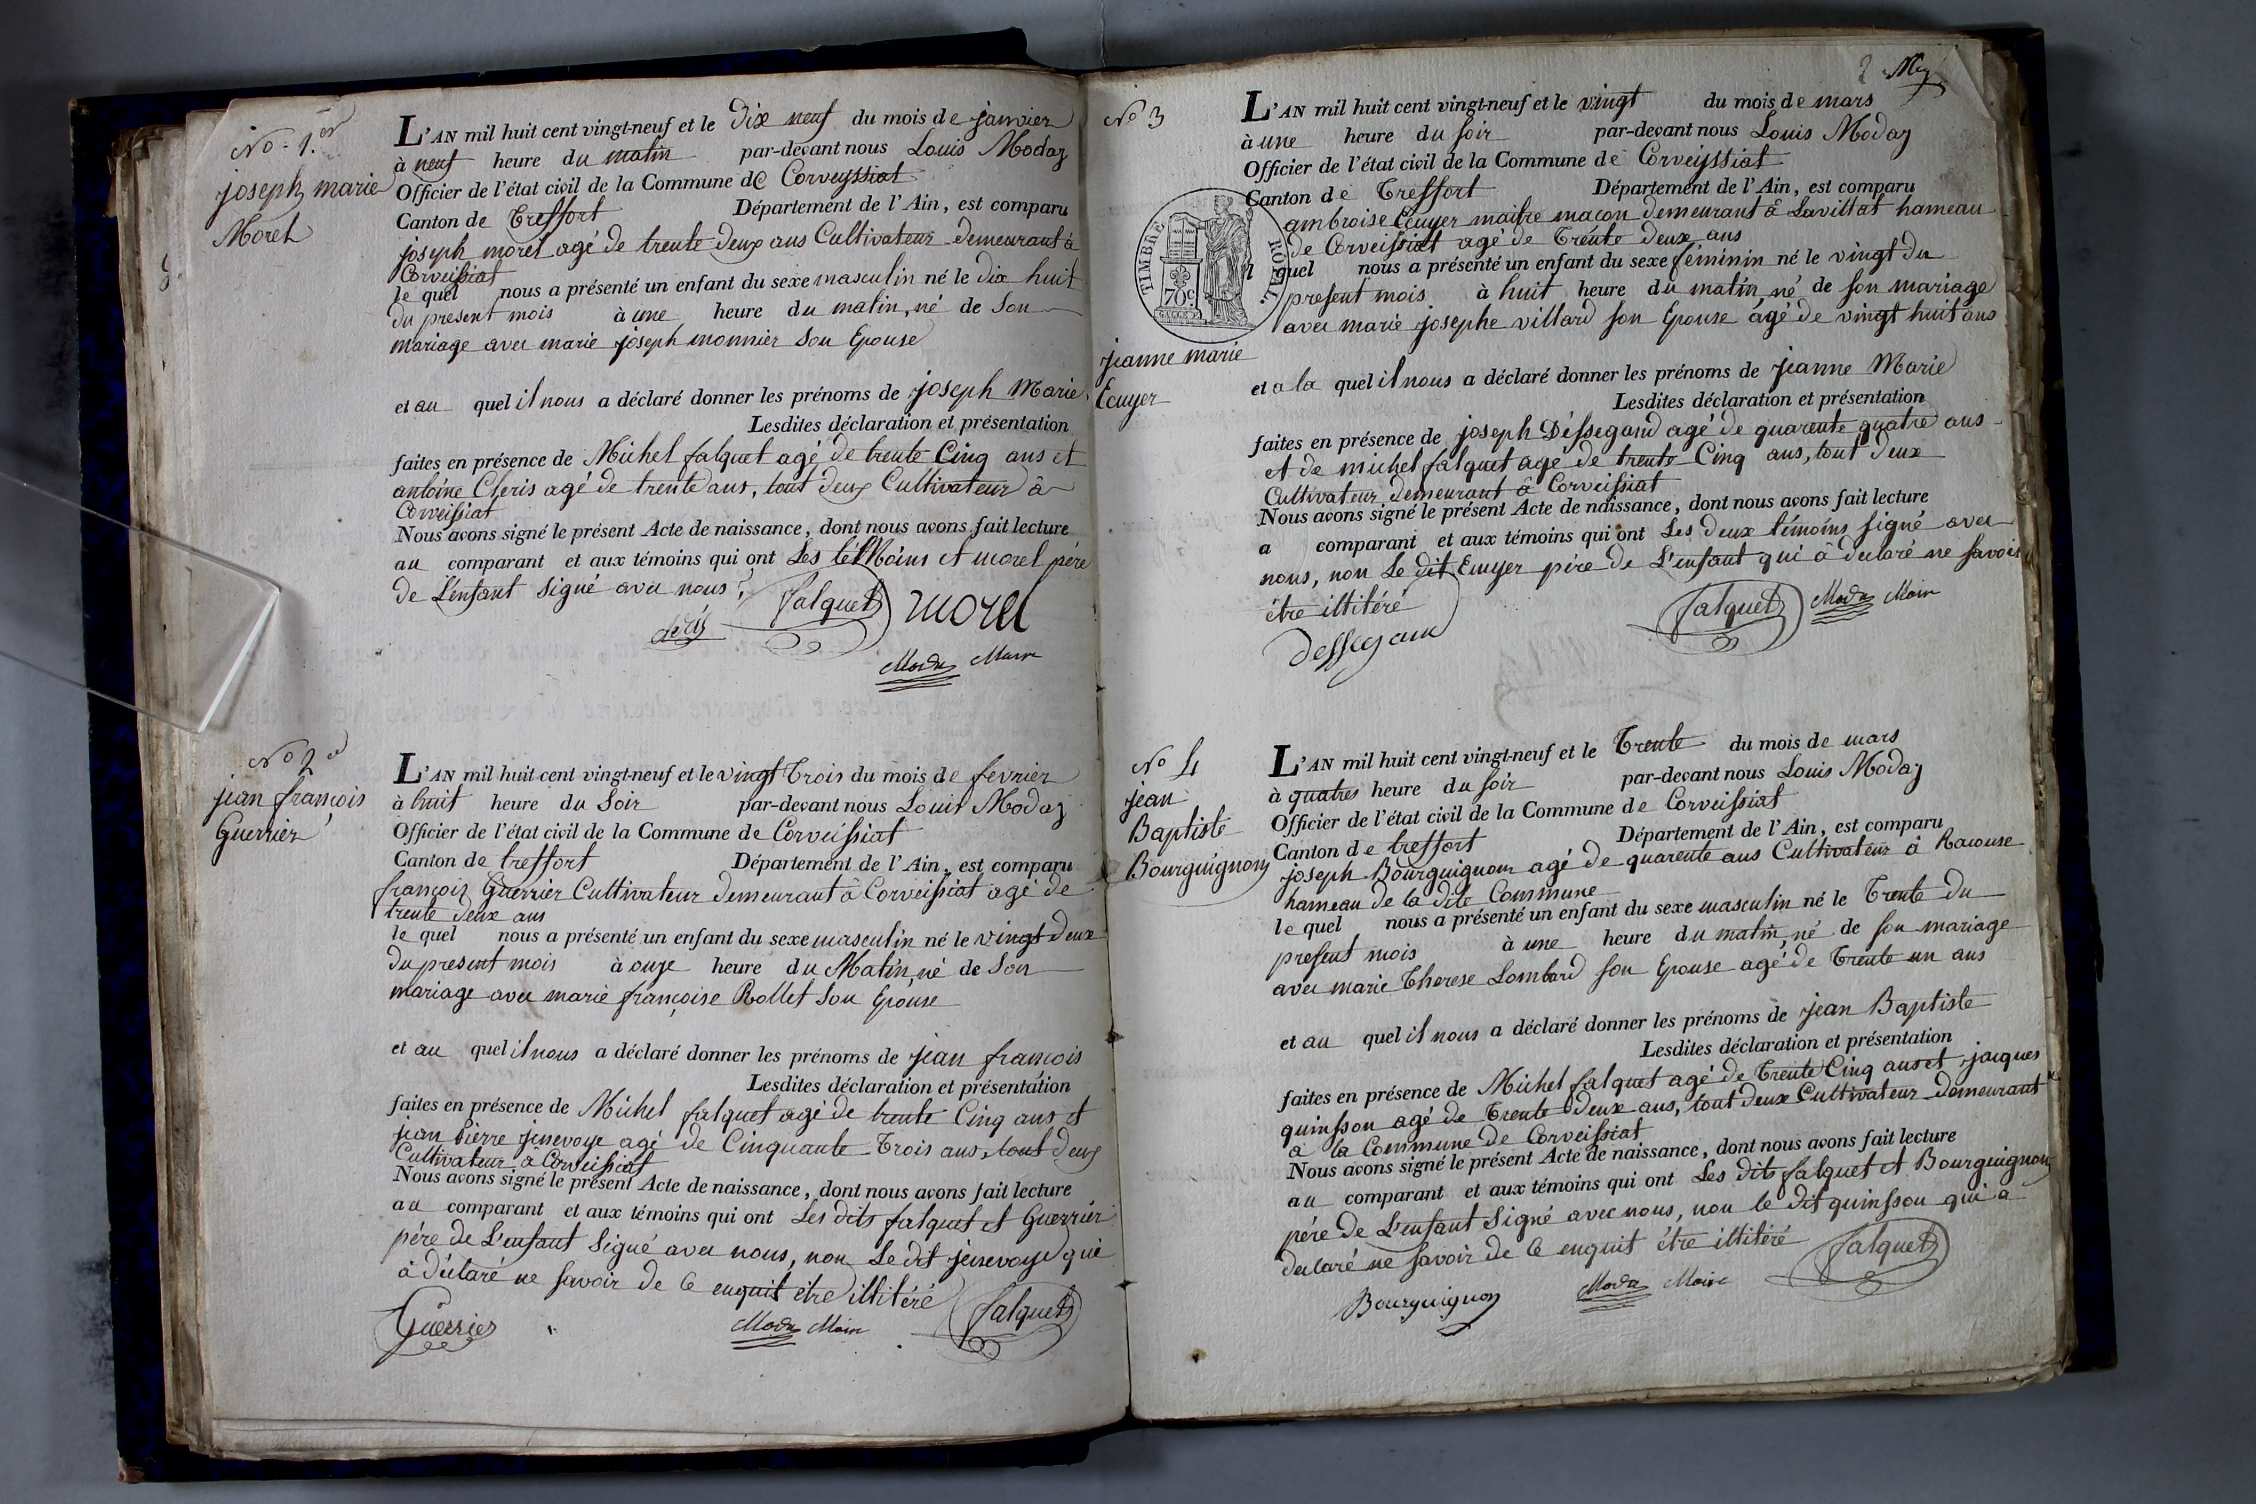 No. 1.er
joseph marie
Morel
L'AN mil huit cent vingt-neuf et le Dix neuf du mois de janvier
à neuf heure du matin par-devant nous Louis Modaz
Officier de l'état civil de la Commune de Corveyssiat
Canton de Treffort Département de l'Ain, est comparu
joseph morel agé de trente deux ans Cultivateur demeurant à
Corveissiat
le quel nous a présenté un enfant du sexe masculin né le dix huit
du present mois à une heure du matin, né de son
mariage avec marie joseph monnier son Epouse
et au quel il nous a déclaré donner les prénoms de joseph Marie
Lesdites déclaration et présentation
faites en présence de Michel falquet agé de trente Cinq ans et
antoine Cheris agé de trente ans, tout deux Cultivateur â
Corveissiat
Nous avons signé le présent Acte de naissance, dont nous avons fait lecture
au comparant et aux témoins qui ont Les témoins et morel père
de L'enfant signé avec nous
falquet morel
Moda Maire
No 2
jean françois
Guerrier
L'AN mil huit cent vingt-neuf et le vingt Trois du mois de fevrier
à huit heure du Soir par-devant nous Louis Modaz
Officier de l'état civil de la Commune de Corveissiat
Canton de treffort Département de l'Ain, est comparu
françoiz Guerrier Cultivateur demeurant â Corveissiat agé de
trente deux ans
le quel nous a présenté un enfant du sexe masculin né le vingt deux
du present mois à onze heure du Matin, né de Son
mariage avec marie françoise Rollet Son Epouse
et au quel il nous a déclaré donner les prénoms de jean françois
Lesdites déclaration et présentation
faites en présence de Michel falquet agé de trente Cinq ans et
jean Pierre jenevoye agé de Cinquante Trois ans, tout deux
Cultivateur â Corveissiat
Nous avons signé le présent Acte de naissance, dont nous avons fait lecture
au comparant et aux témoins qui ont Les dits falquet et Guerrier
père de L'enfant Signé avec nous, non Le dit jenevoye qui
â déclaré ne savoir de ce enquit être illitéré
Guerrier Moda Maire falquet
2
No 3
jeanne marie
Ecuyer
TIMBRE ROYAL
70c
L'AN mil huit cent vingt-neuf et le vingt du mois de mars
à une heure du soir par-devant nous Louis Modaz
Officier de l'état civil de la Commune de Corveyssiat
Canton de Treffort Département de l'Ain, est comparu
ambroise Ecuyer maitre maçon demeurant â Lavillat hameau
de Corveissiat agé de Trente deux ans
l quel nous a présenté un enfant du sexe féminin né le vingt du
present mois à huit heure du matin, né de son mariage
avec marie josephe villard son Epouse agé de vingt huit ans
et a la quel il nous a déclaré donner les prénoms de jeanne Marie
Lesdites déclaration et présentation
faites en présence de joseph Dessegand agé de quarente quatre ans
et de michel falquet agé de trente Cinq ans, tout deux
Cultivateur demeurant â Corveissiat
Nous avons signé le présent Acte de naissance, dont nous avons fait lecture
a comparant et aux témoins qui ont Les deux témoins signé avec
nous, non Le dit Ecuyer père de L'enfant qui â declaré ne savoir
être illitéré
dessegand falquet Moda Maire
No 4
jean
Baptiste
Bourguignon
L'AN mil huit cent vingt-neuf et le Trente du mois de mars
à quatres heure du soir par-devant nous Louis Modaz
Officier de l'état civil de la Commune de Corveissiat
Canton de treffort Département de l'Ain, est comparu
joseph Bourguignon agé de quarente ans Cultivateur â Racouse
hameau de la dite Commune
le quel nous a présenté un enfant du sexe masculin né le Trente du
present mois à une heure du matin, né de son mariage
avec marie Therese Lombard son Epouse agé de Trente un ans
et au quel il nous a déclaré donner les prénoms de jean Baptiste
Lesdites déclaration et présentation
faites en présence de Michel falquet agé de Trente Cinq ans et jacques
quinsson agé de Trente deux ans, tout deux Cultivateur demeurant
a la Commune de Corveissiat
Nous avons signé le présent Acte de naissance, dont nous avons fait lecture
au comparant et aux témoins qui ont Les dits falquet et Bourguignon
père de L'enfant Signé avec nous, non le dit quinsson qui a
declaré ne savoir de ce enquit être illitéré
Bourguignon Moda Maire falquet